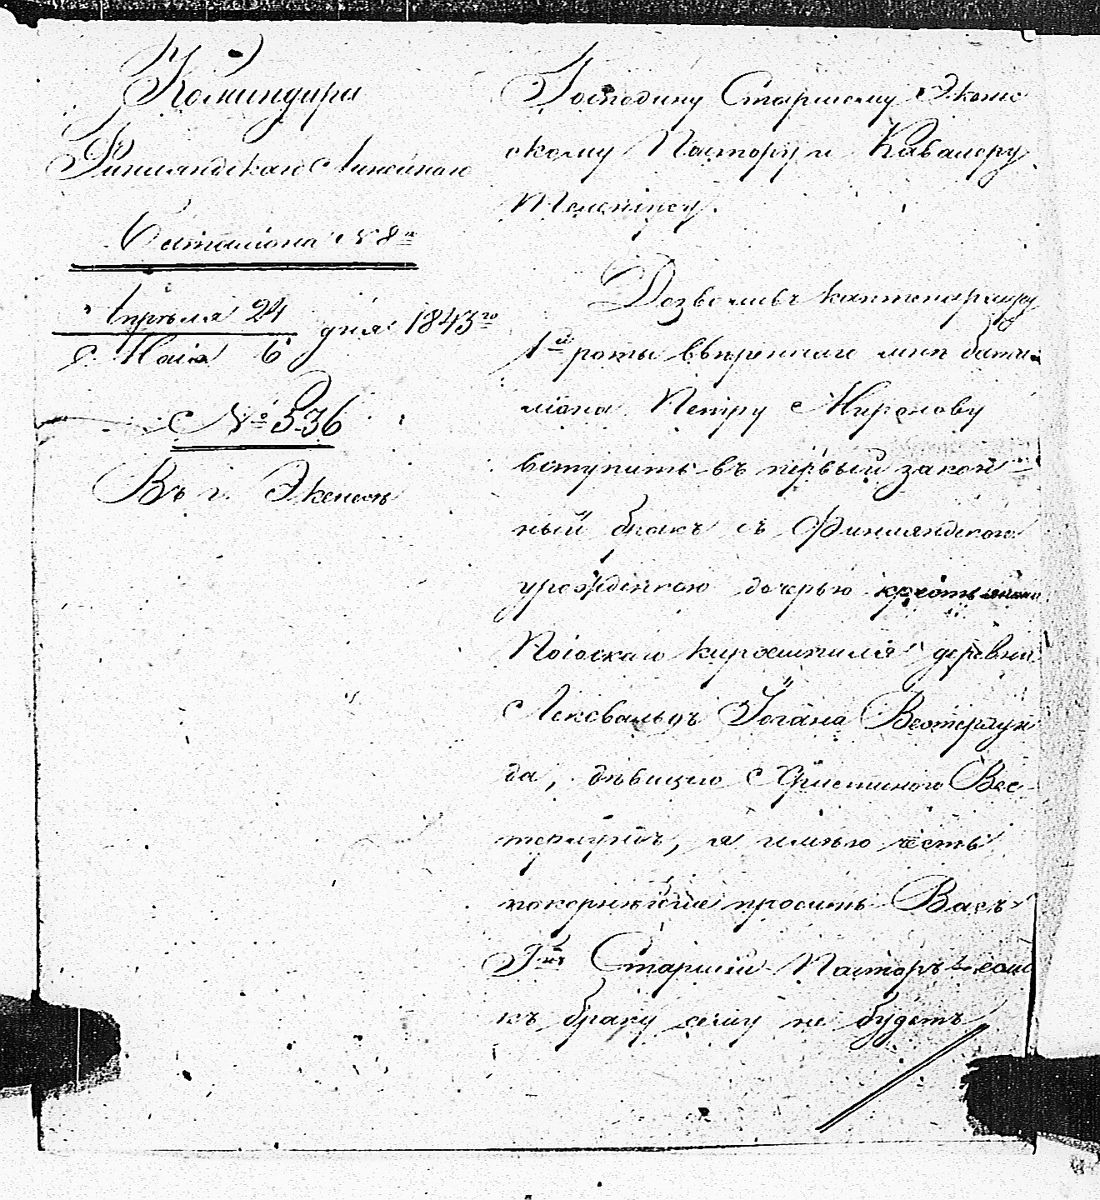 Командира
Финляндскаго Линейнаго
Баталіона № 8го
Апрѣля 24
Маія 6 дня 1843го
№ 536
Въ г. Экенесъ
Господину Старшему Экенес
скому Пастору и Кавалеру
Дозволивъ каптенармусу
1й роты ввѣреннаго мнѣ бата
ліона Петру Миронову
вступить въ первый закон-
ный бракъ съ Финляндскою
уроженкою дочерью крестьянина
Поіоскаго кирхшпиля деревни
Лексвальдъ Іогана Вестерлун
да, дѣвицею Христиною Вес-
терлундъ, я имѣю честь
покорнѣйше просить Васъ
Гнъ Старшій Пасторъ если
къ браку сему не будетъ